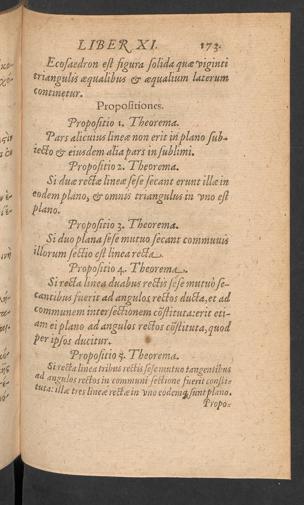 LIBER XI. 173.
Ecosaedron est figura solida quæ viginti
triangulis æqualibus & æqualium laterum
continetur.
Propositiones.
Propositio 1. Theorema.
Pars alicuius lineæ non erit in plano sub-
iecto & eiusdem alia pars in sublimi.
Propositio 2. Theorema.
Si duæ rectæ lineæ sese secant erunt illæ in
eodem plano, & omnis triangulus in vno est
plano.
Propositio 3. Theorema.
Si duo plana sese mutuo secant communis
illorum sectio est linea recta.
Propositio 4. Theorema.
Si recta linea duabus rectis sese mutuò se-
cantibus fuerit ad angulos rectos ducta, et ad
communem intersectionem cōstituta: erit eti-
am ei plano ad angulos rectos cōstituta, quod
per ipsos ducitur.
Propositio 5. Theorema.
Si recta linea tribus rectis sese mutuo tangentibus
ad angulos rectos in communi sectione fuerit consti-
tuta: illæ tres lineæ rectæ in vno eodemq; sunt plano.
Propo-